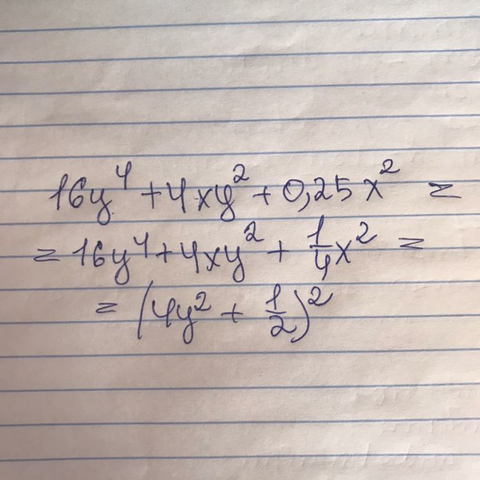 16y⁴ + 4xy² + 0,25x² =
= 16y⁴ + 4xy² + 1/4x² =
= (4y² + 1/2)²